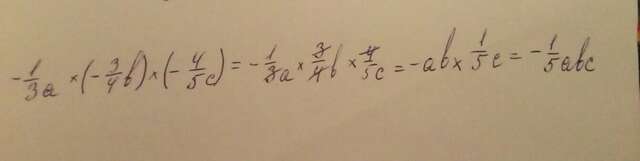 -1/3a × (-3/4b) × (-4/5c) = -1/3a × 3/4b × 4/5c = -ab × 1/5c = -1/5abc